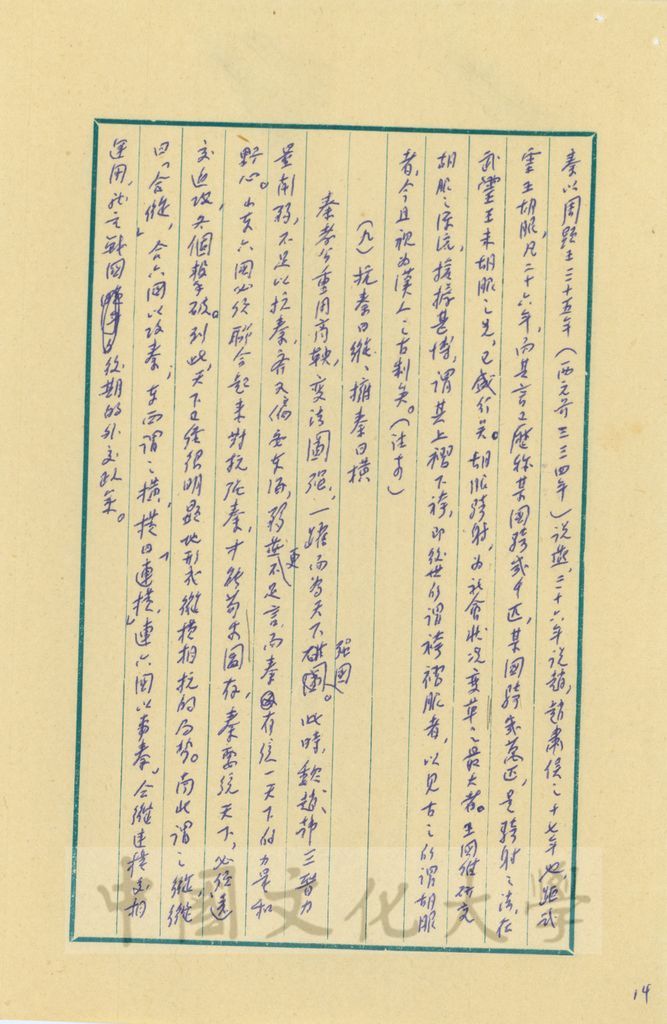 秦以周顯王三十五年(西元前三三四年)說燕,三十六年說趙,趙肅侯之十七年也,距武
靈王胡服,凡二十六年,而其言已歷稱某國騎或千匹,某國騎或萬匹,是騎射之法,在
武靈王未胡服之先,已盛行矣。胡服騎射,為社會狀況變革之最大者。王國維研究
胡服之源流,考據甚博,謂其上褶下袴,即後世所謂袴褶服者,以見古之所謂胡服
者,今且視為漢人之古制矣。(註
(九)抗秦曰縱、擁秦曰橫
秦孝公重用商鞅,變法圖強,一躍而為天下強國。此時,魏趙韓三晉力
量削弱,不足以抗秦,齊又偏安東海,弱燕更不足言,而秦有統一天下的力量和
野心。山東六國必須聯合起來對抗強秦,才能苟安圖存,秦要統天下,必須遠
交近攻,各個擊破。到此,天下已經很明顯地形成縱橫相抗的局勢。南北謂之縱,縱
曰「合縱」,合六國以攻秦;東西謂之橫,橫曰「連橫」,連六國以事秦。合縱連橫之相
運用,就是戰國後期的外交政策。
14
中國文化大學